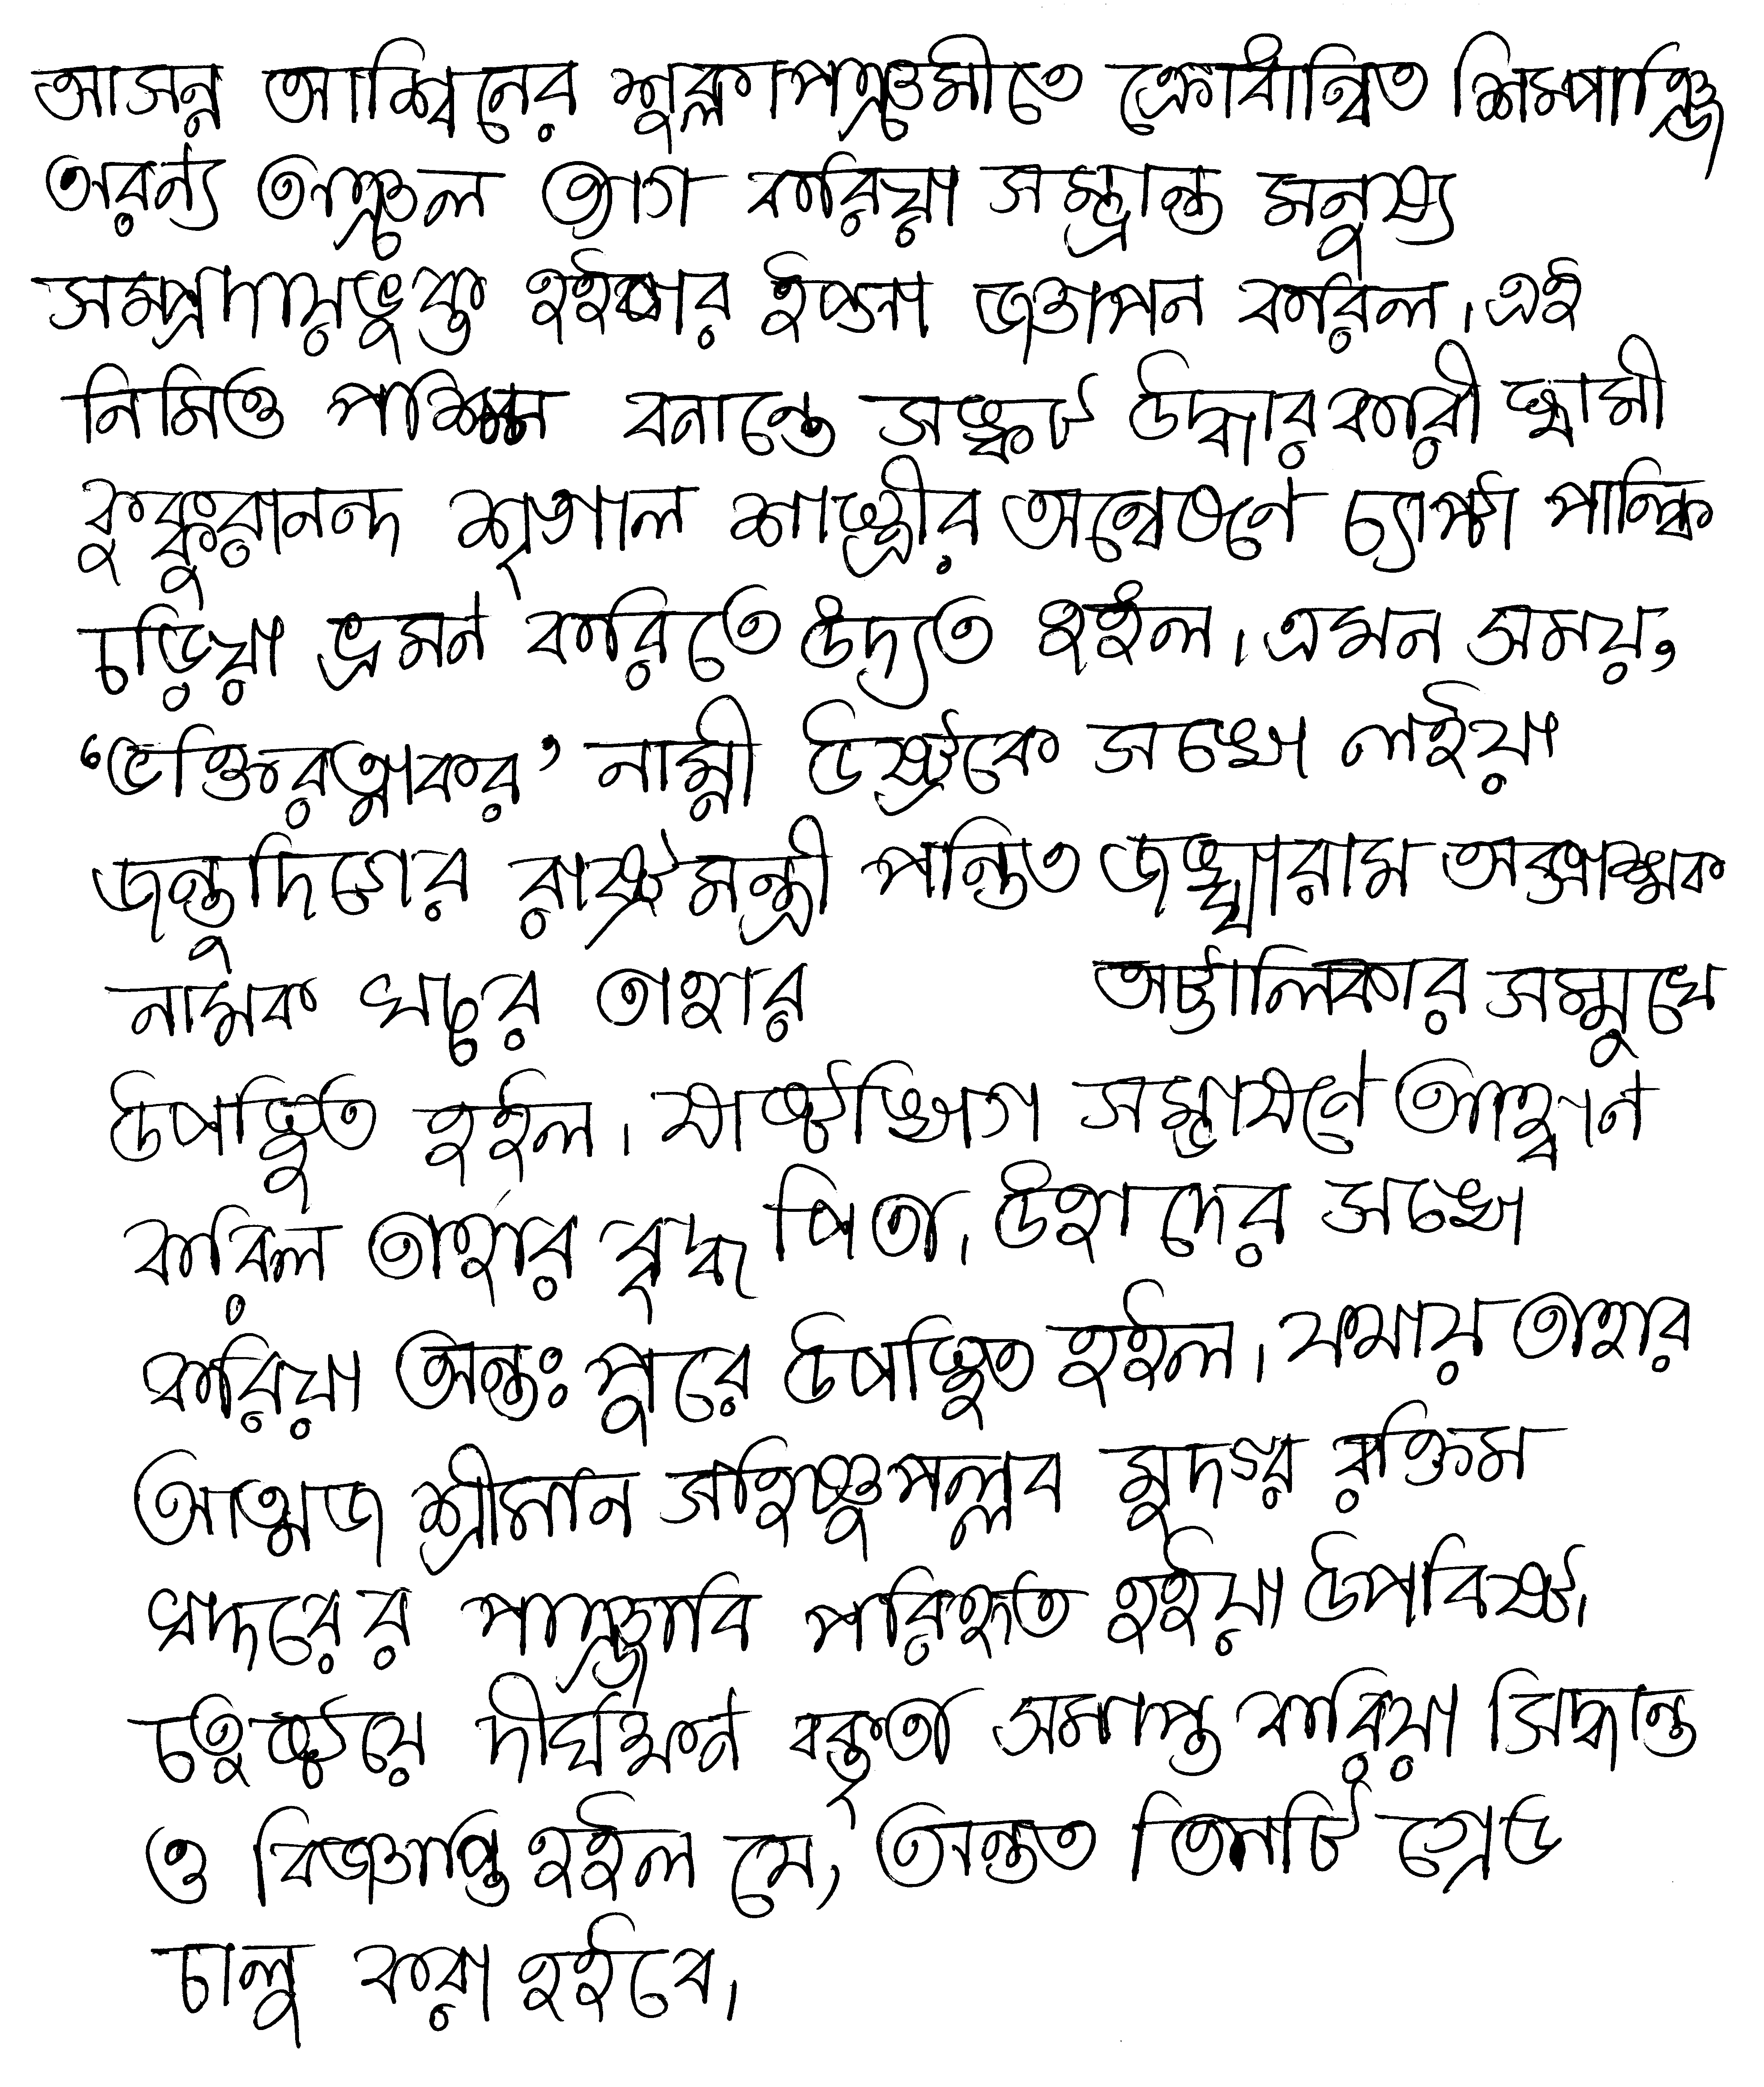 আসন্ন আশ্বিনের শুক্লাপঞ্চমীতে ক্রোধান্বিত শিম্পাঞ্জি
অরন্য অঞ্চল ত্যাগ করিয়া সম্ভ্রান্ত মনুষ্য
সম্প্রদায়ভুক্ত হইবার ইচ্ছা জ্ঞাপন করিল। এই
নিমিত্ত পশ্চিম বনান্তে সঙ্কট উদ্ধারকারী স্বামী
কুক্কুরানন্দ শৃগাল শাস্ত্রীর অন্বেষনে চ্যাপ্টা পাল্কি
চড়িয়া ভ্রমন করিতে উদ্যত হইল। এমন সময়,
‘ভক্তিরত্নাকর’ নাম্নী উষ্ট্রকে সঙ্গে লইয়া
জন্তুদিগের রাষ্ট্রমন্ত্রী পন্ডিত জঙ্ঘারাম
নামক খচ্চর তাহার অট্টালিকার সম্মুখে
উপস্থিত হইল। ষাষ্টাঙ্গে সম্ভাষনে আহ্বান
করিল তাহার বৃদ্ধ পিতা। উহাদের সঙ্গে
করিয়া অন্তঃপুরে উপস্থিত হইল। যথায় তাহার
আত্মজ শ্রীমান সহিষ্ণুপল্লব মুদগর রক্তিম
খদ্দরের পাঞ্জাবি পরিহৃত হইয়া উপবিষ্ট।
চতুষ্টয়ে দীর্ঘক্ষন বক্তৃতা সমাপ্ত করিয়া সিদ্ধান্ত
ও বিজ্ঞপ্তি হইল যে, অন্তত তিনটি গ্রেড
চালু করা হইবে।